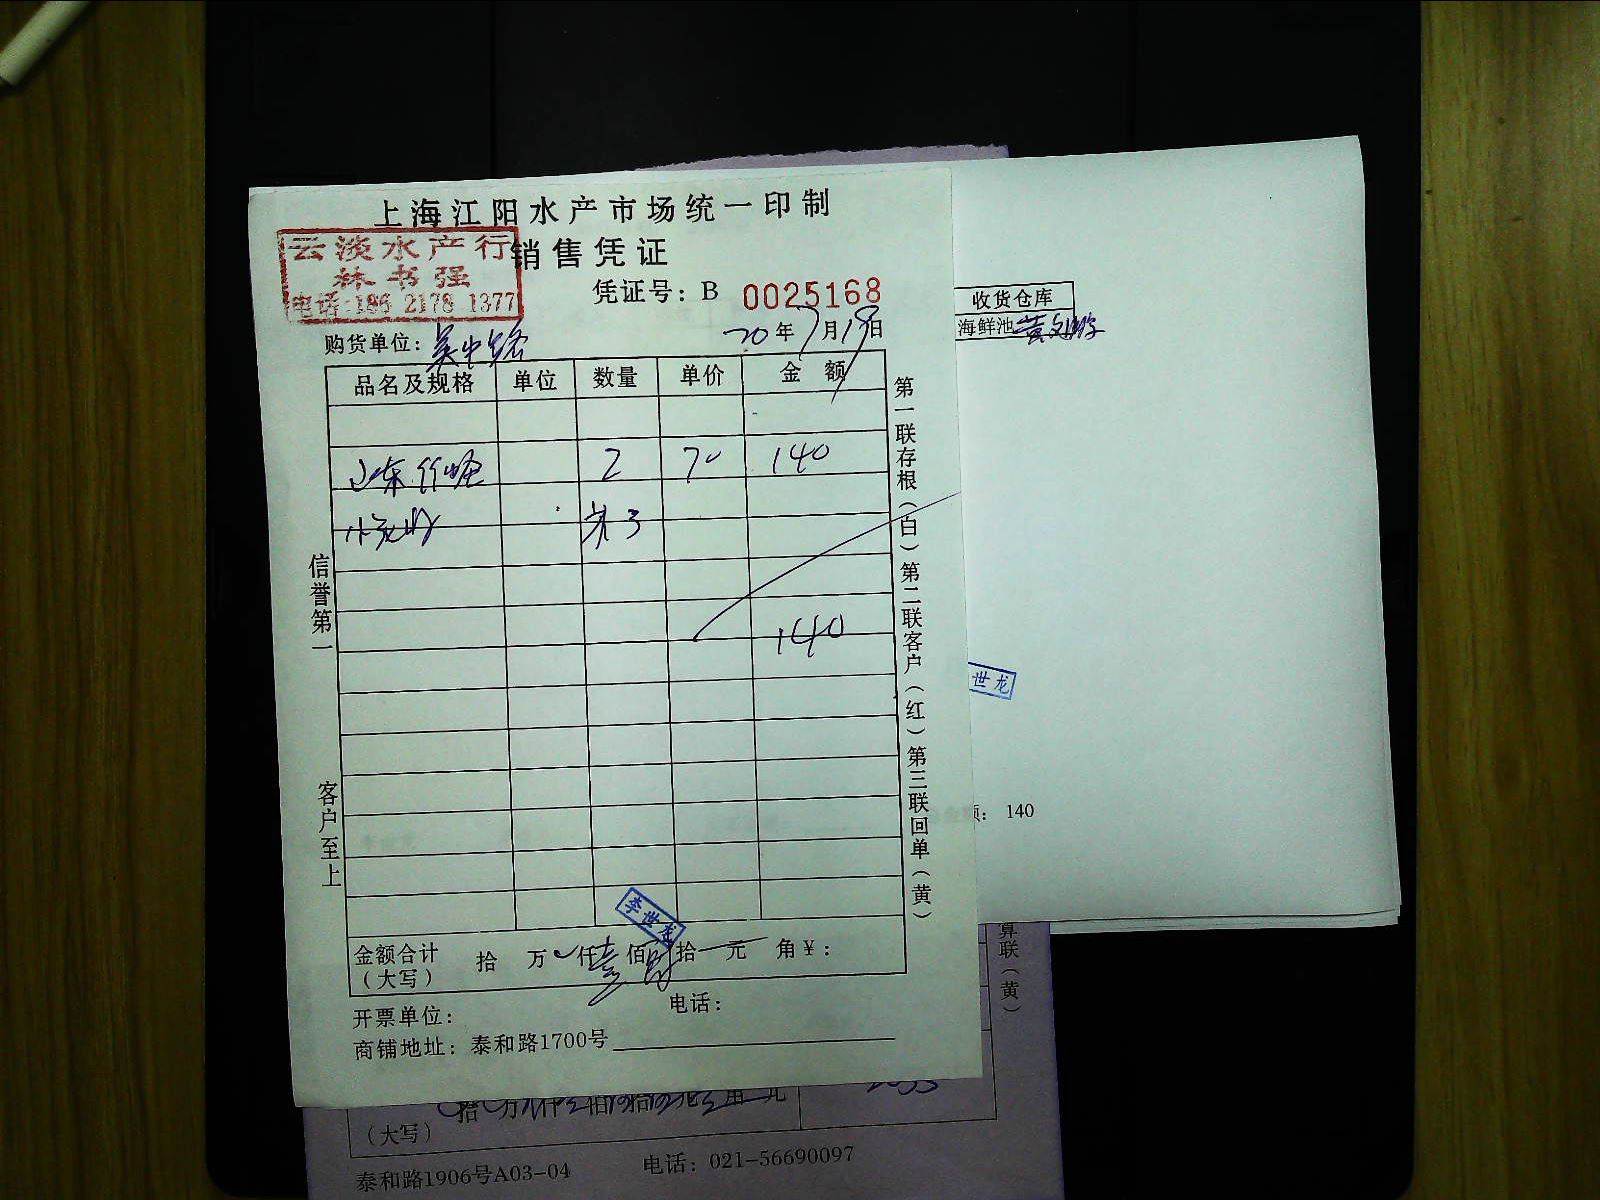 上海江阳水产市场统一印制
销售凭证
云淡水产行
林书强
电话:186 2178 1377
凭证号：B 0025168
购货单位：吴中路 20年7月19日
品名及规格 单位 数量 单价 金额
山东竹蛏 2 70 140
3
140
信誉第一
客户至上
第一联存根（白）第二联客户（红）第三联回单（黄）
李世龙
金额合计（大写） 拾 万 仟壹佰肆拾 元 角￥：
开票单位： 电话：
商铺地址：泰和路1700号
收货仓库
海鲜池
世龙
：140
算联（黄）
拾 万 仟 佰 拾 元 角 元
（大写）
泰和路1906号A03-04 电话：021-56690097